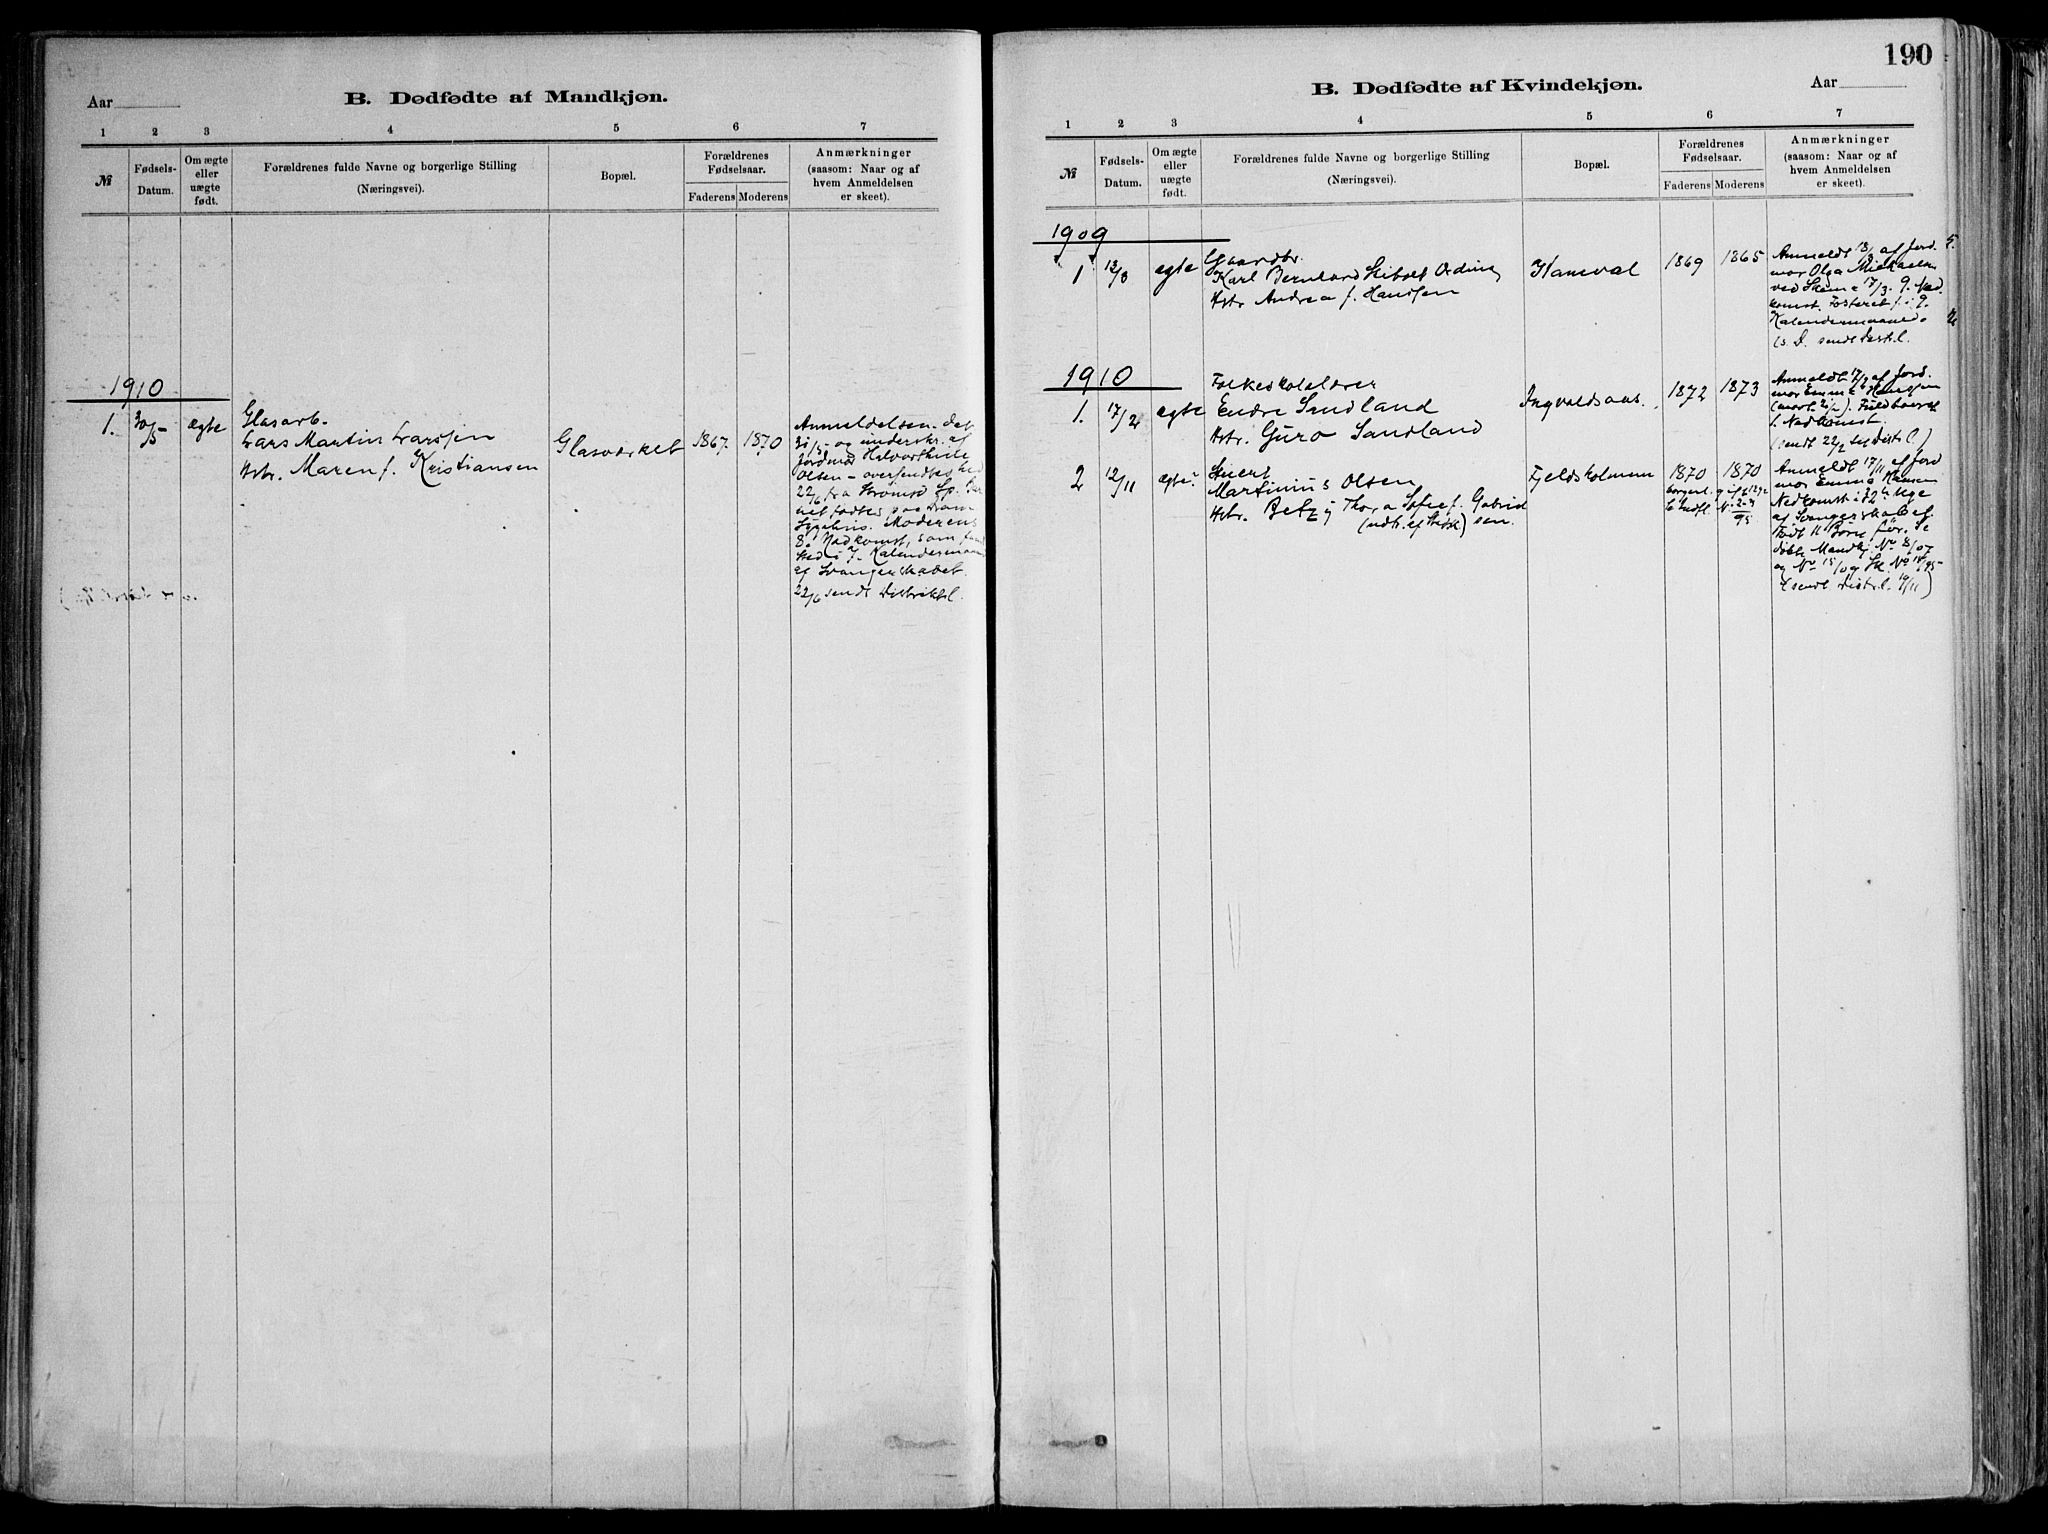 Aar
B. Dødfødte af Mandkjøn.
1 2 3 4 5 6 7
№
Fødsels-
Datum.
Om ægte
eller
uægte
født.
Forældrenes fulde Navne og borgerlige Stilling
(Næringsvei).
Bopæl.
Forældrenes
Fødselsaar.
Faderens Moderens
Anmærkninger
(saasom: Naar og af
hvem Anmeldelsen
er skeet).
1910
1. 30/5 ægte
Glasarb.
Lars Martin Larssen
Hstr. Maren f. Kristiansen
Glasværket
1867. 1870
Anmeldelsen
og underskr. af
Jordmor
Olsen – oversendtes
22/6 fra Strømsø Sp.
født
Sygehus. Moderens
8. Nedkomst, som fandt
Sted i 7. Kalendermaaned
af Svangerskabet.
22/6 sendt Distriktsl.
190
B. Dødfødte af Kvindekjøn.
Aar
1 2 3 4 5 6 7
№
Fødsels-
Datum.
Om ægte
eller
uægte
født.
Forældrenes fulde Navne og borgerlige Stilling
(Næringsvei).
Bopæl.
Forældrenes
Fødselsaar.
Faderens Moderens
Anmærkninger
(saasom: Naar og af
hvem Anmeldelsen
er skeet).
1909
1 ægte
Gaardbr.
Karl Bernhard Ording
Hstr. Andrea f. Hanssen
1869 1865
Anmeldt af Jord.
mor Olga
ved Skema 17/3. 9. Ned.
komst. Fosteret i 9.
Kalendermaaned.
sendt
1910
1. 17/2 egte
Folkeskolelærer
Endre Sandland
Hstr. Guro Sandland
Ingvaldsaas.
1872 1873
Anmeldt 17/2 af Jord.
mor Emma Hansen
Fuldbaaret
1. Nedkomst.
(sendt 22/2 Distr.l.)
2 12/11 egte
Martinius Olsen
Hstr. Betzy Thora Sofie f. Gabriel
sen.
Fjeldsholmen
1870 1870
Anmeldt 17/11 af Jord
mor Emma Hansen
Nedkomst i 32te Uge
af Svangerskabet.
Født 11 Børn før. Se
døbte Mandkj. No 8/07
og No 15/09
(sendt Distr.l. 19/11)